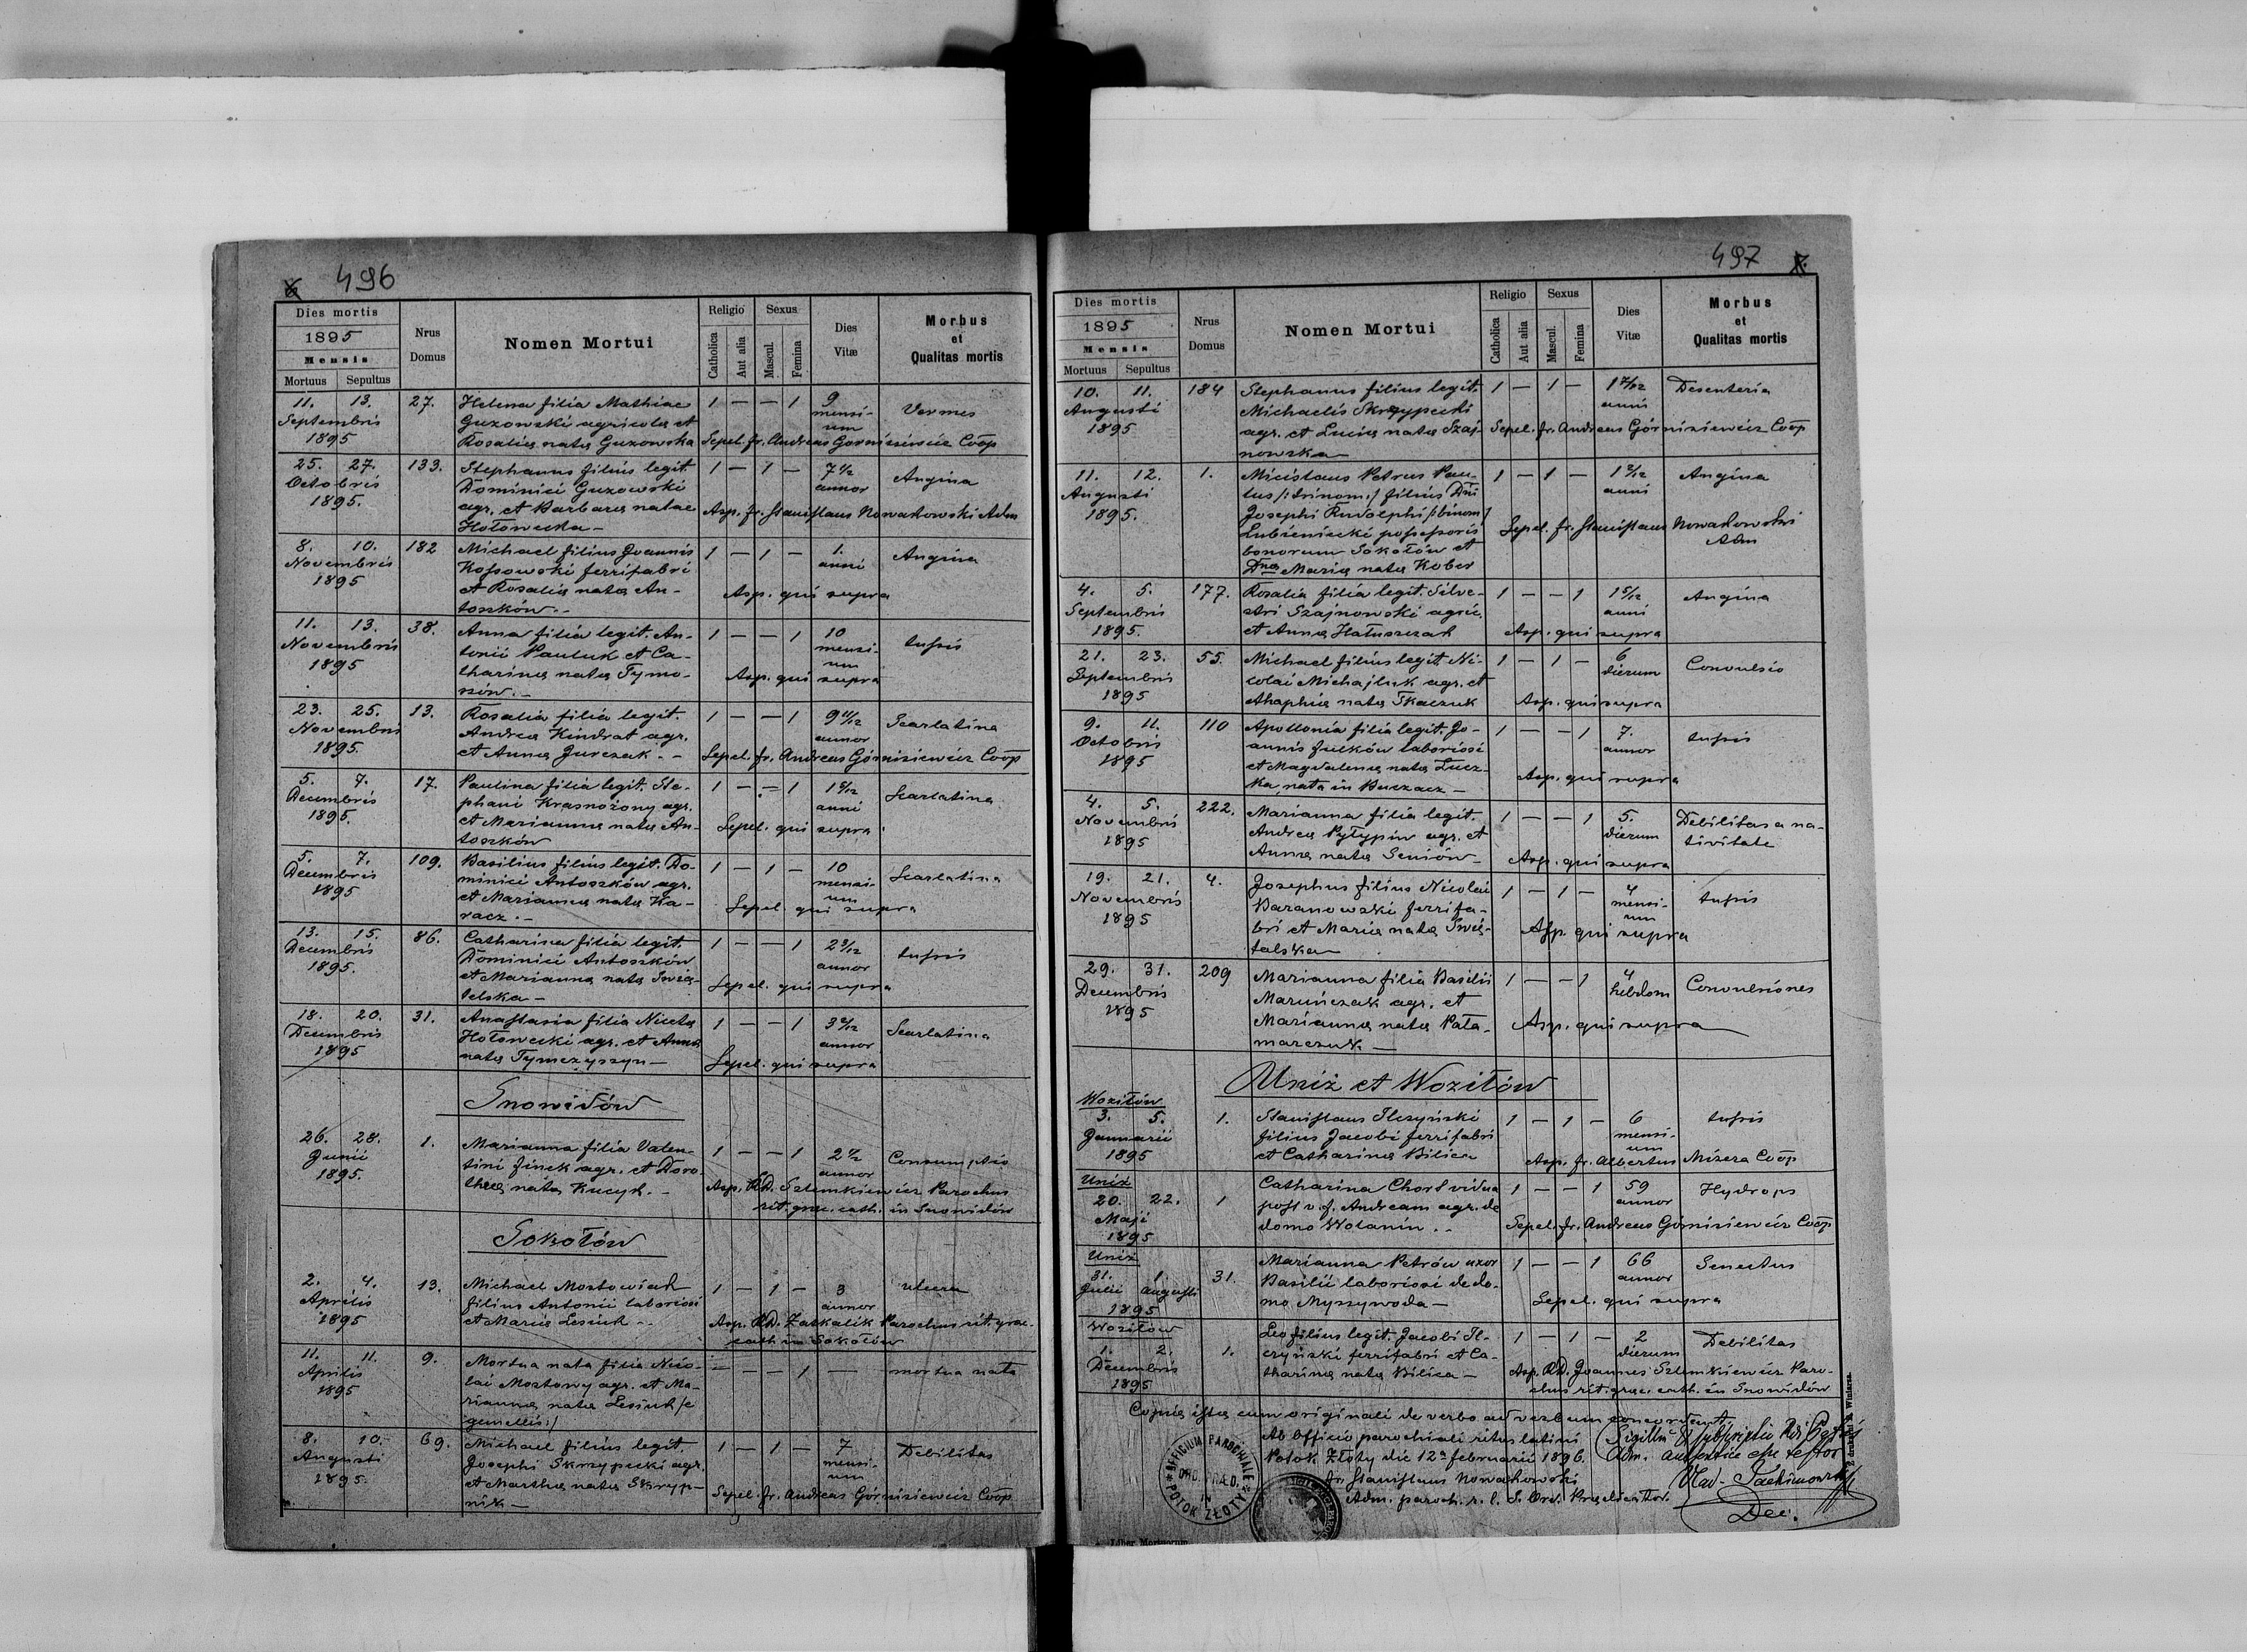 496
Dies mortis
1895
Mensis
Mortuus Sepultus
Nrus Domus
Nomen Mortui
Religio
Catholica
Aut alia
Sexus
Mascul.
Femina
Dies Vitæ
Morbus et Qualitas mortis
11. 13. 27. Helena filia Mathiae 1 — — 1 9
Septembris Guzowski agricola et mensi- Vermes
1895 Rosalia nata Guzowska um
Sepel. fr. Andreas Gornisiewicz Coop
25. 27. 133. Stephanus filius legit. 1 — 1 — 7 1/2
Octobris Dominici Guzowski annor Angina
1895. agr. et Barbara natae
Hołowecka — Asp. fr. Stanislaus Nowakowski Adm
8. 10. 182 Michael filius Joannis 1 — 1 — 1. Angina
Novembris Kossowski ferrifabri anni
1895 et Rosalia nata An-
toszków. — Asp. qui supra
11. 13. 38. Anna filia legit. An- 1 — — 1 10 tussis
Novembris tonii Pauluk et Ca- mensi-
1895 tharina nata Tymo- um
szów. — Asp. qui supra
23. 25. 13. Rosalia filia legit. 1 — — 1 9 11/12 Scarlatina
Novembris Andrea Kindrat agr. annor
1895. et Anna Jurczak. — Sepel. fr. Andreas Górnisiewicz Coop
5. 7. 17. Paulina filia legit. Ste- 1 — — 1
Decembris phani Krasnożony agr. anni Scarlatina
1895. et Marianna nata An-
toszków Sepel. qui supra
5. 7. 109. Basilius filius legit. Do- 1 — 1 — 10
Decembris minici Antoszków agr. mensi- Scarlatina
1895 et Marianna nata Ka- um
racz. — Sepel. qui supra
13. 15. 86. Catharina filia legit. 1 — — 1
Decembris Dominici Antoszków annor tussis
1895. et Marianna nata Świę-
telska — Sepel. qui supra
18. 20. 31. Anastasia filia Niceta 1 — — 1 Scarlatina
Decembris Hołowecki agr. et Anna annor
1895 nata Tymczyszyn — Sepel. qui supra
Snowidów
26. 28. 1. Marianna filia Valen- 1 — — 1 2 1/2
Junii tini Finek agr. et Doro- annor Consumptio
1895. thea nata Kucyk. — Asp. RD. Szlemkiewicz Parochus
rit. graec. cath. in Snowidów
Sokołów
2. 4. 13. Michael Mostowiak 1 — 1 — 3 ulcera
Aprilis filius Antonii laboriosi annor
1895 et Maria Lesiuk — Asp. RD. Zatkalik Parochus rit. grae.
cath in Sokołów
11. 11. 9. Mortua nata filia Nico- — — — 1 — mortua nata
Aprilis lai Mostowy agr. et Ma-
1895 rianna nata Lesiuk /e
gemellis:/
8. 10. 69. Michael filius legit. 1 — 1 — 7 Debilitas
Augusti Josephi Skrzypecki agr. mensi-
1895. et Martha nata Skryp- um
nik — Sepel. fr. Andreas Górnisiewicz Coop
497
Dies mortis
1895
Mensis
Mortuus Sepultus
Nrus Domus
Nomen Mortui
Religio
Catholica
Aut alia
Sexus
Mascul.
Femina
Dies Vitæ
Morbus et Qualitas mortis
10. 11. 184 Stephanus filius legit. 1 — 1 — Desenteria
Augusti Michaelis Skrzypecki anni
1895 agr. et Lucia nata Szaj- Sepel. fr. Andreas Górnisiewicz Coop
nowska —
11. 12. 1. Micislaus Petrus Pau- 1 — 1 — 1 2/12 Angina
Augusti lus /:trinom:/ filius Dni anni
1895. Josephi Rudolphi /:binom/
Lubieniecki possessoris Sepel. fr. Stanislaus Nowakowski
bonorum Sokołów et Adm
Dna Maria nata Kober
4. 5. 177. Rosalia filia legit. Silve- 1 — — 1 1 5/12 Angina
Septembris stri Szajnowski agric. anni
1895. et Anna Hałuszczak Asp. qui supra
21. 23. 55. Michael filius legit. Ni- 1 — 1 — 6 Convulsio
Septembris colai Michajluk agr. et dierum
1895 Ahaphia nata Tkaczuk Asp. qui supra
9. 11. 110 Apollonia filia legit. Jo- 1 — — 1 7. tussis
Octobris annis Fulków laboriosi annor
1895 et Magdalena nata Łucz-
ka, nata in Buczacz — Asp. qui supra
4. 5. 222. Marianna filia legit. 1 — — 1 5. Debilitas a na-
Novembris Andrea Pyłypiw agr. et dierum tivitate
1895 Anna nata Seniów — Asp. qui supra
19. 21. 4. Josephus filius Nicolai 1 — 1 — 4 tussis
Novembris Baranowski ferrifa- mensi-
1895 bri et Maria nata Świę- um
talska — Asp. qui supra
29. 31. 209 Marianna filia Basilii 1 — — 1 4 Convulsiones
Decembris Maruńczak agr. et hebdom
1895 Marianna nata Pała- Asp. qui supra
marczuk —
Uniż et Woziłów
Woziłów
3. 5. 1. Stanislaus Ilczyński 1 — 1 — 6 tussis
Januarii filius Jacobi ferrifabri mensi-
1895 et Catharina Bilica um
Asp. fr. Albertus Misera Coop
Uniż
20. 22. 1 Catharina Chort vidua 1 — — 1 59 Hydrops
Maji post v. f. Andream agr. de annor
1895 domo Wołanin. — Sepel. fr. Andreas Górnisiewicz Coop
Uniż
31. 1. 31. Marianna Petrów uxor 1 — — 1 66 Senectus
Julii Augusti Basilii laboriosi de do- annor
1895 mo Myssywoda — Sepel. qui supra
Woziłów
1. 2. 1. Leo filius legit. Jacobi Il- 1 — 1 — 2 Debilitas
Decembris czyński ferrifabri et Ca- dierum
1895 tharina nata Bilica — Asp. RD. Joannes Szlemkiewicz Paro-
chus rit. graec. cath. in Snowidów
Copia ista cum originali de verbo ad verbum concordat.
Ab Officio parochiali ritus latini
Potok Złoty die 12a februarii 1896.
fr. Stanislaus Nowakowski
Adm. paroch. r. l. S. Ord. Praedicator.
Adm. authentice esse testor
Vlad.
Dec.
OFFICIUM PAROCHIALE
ORD. PRÆD.
POTOK ZŁOTY
Liber Mortuorum
Z drukarni Winiarza.